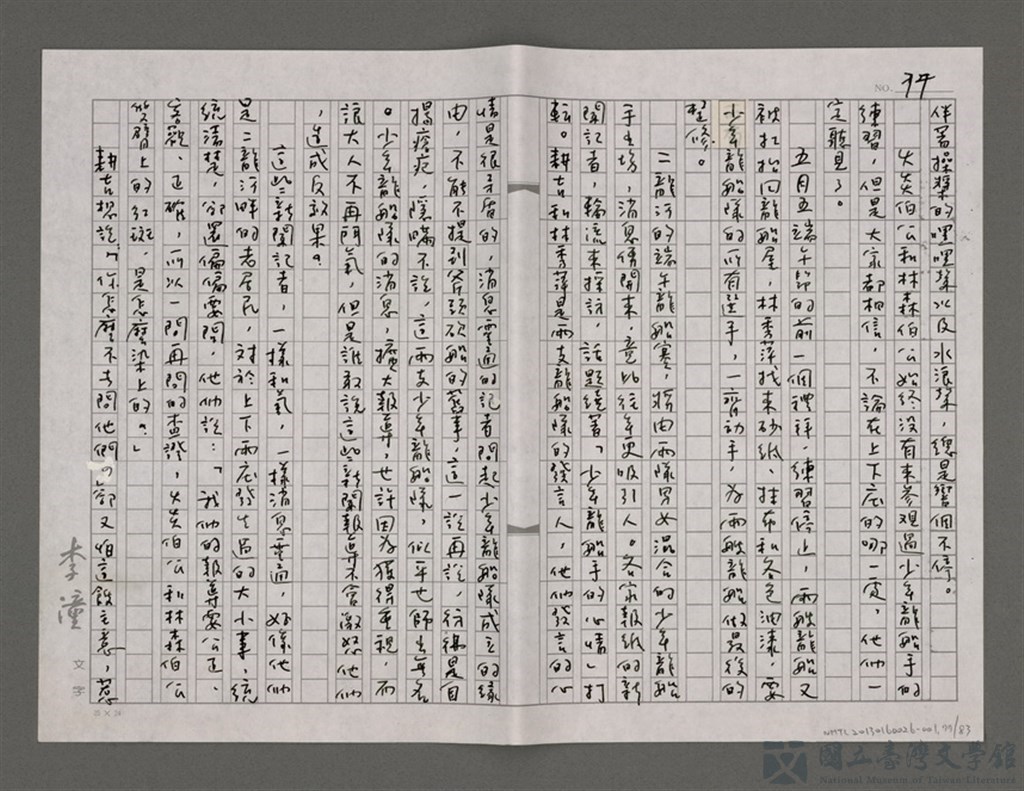 NO. 77
伴著操槳的嘿嘿聲以及水浪聲，總是響個不停。
火炎伯公和林森伯公始終沒有來參觀過少年龍船手的
練習，但是大家都相信，不論在上下底的哪一處，他們一
定聽見了。
五月五端午節的前一個禮拜，練習停止，兩艘龍船又
被扛抬回龍船屋，林秀萍找來砂紙、抹布和各色油漆，要
少年龍船隊的所有選手，一齊動手，為兩艘龍船做最後的
整修。
二龍河的端午龍船賽，將由兩隊男女混合的少年龍船
手上場，消息傳開來，竟比往年更吸引人。各家報紙的新
聞記者，輪流來採訪，話題繞著「少年龍船手的心情」打
轉。耕吉和林秀萍是兩支龍船隊的發言人，他們發言的心
情是很矛盾的，消息靈通的記者問起少年龍船隊成立的緣
由，不能不提到斧頭砍船的舊事，這一說再說，彷彿是自
揭瘡疤，隱瞞不說，這兩支少年龍船隊，似乎也師出無名
。少年龍船隊的消息，擴大報導，也許因為獲得重視，而
讓大人不再鬥氣，但是誰敢說這些新聞報導不會激怒他們
，造成反效果。
這些新聞記者，一樣和氣，一樣消息靈通，好像他們
是二龍河畔的老居民，對於上下兩底發生過的大小事，統
統清楚，卻還偏偏要問，他們說：「我們的報導要公正、
客觀、正確，所以一問再問的查證，火炎伯公和林森伯公
臂上的紅斑，是怎麼染上的？」
耕吉想說：「你怎麼不去問他們」卻又怕這餿主意，惹
李潼
文字
25 × 24
NMTL20130160026-001,77/83
國立臺灣文學館
National Museum of Taiwan Literature